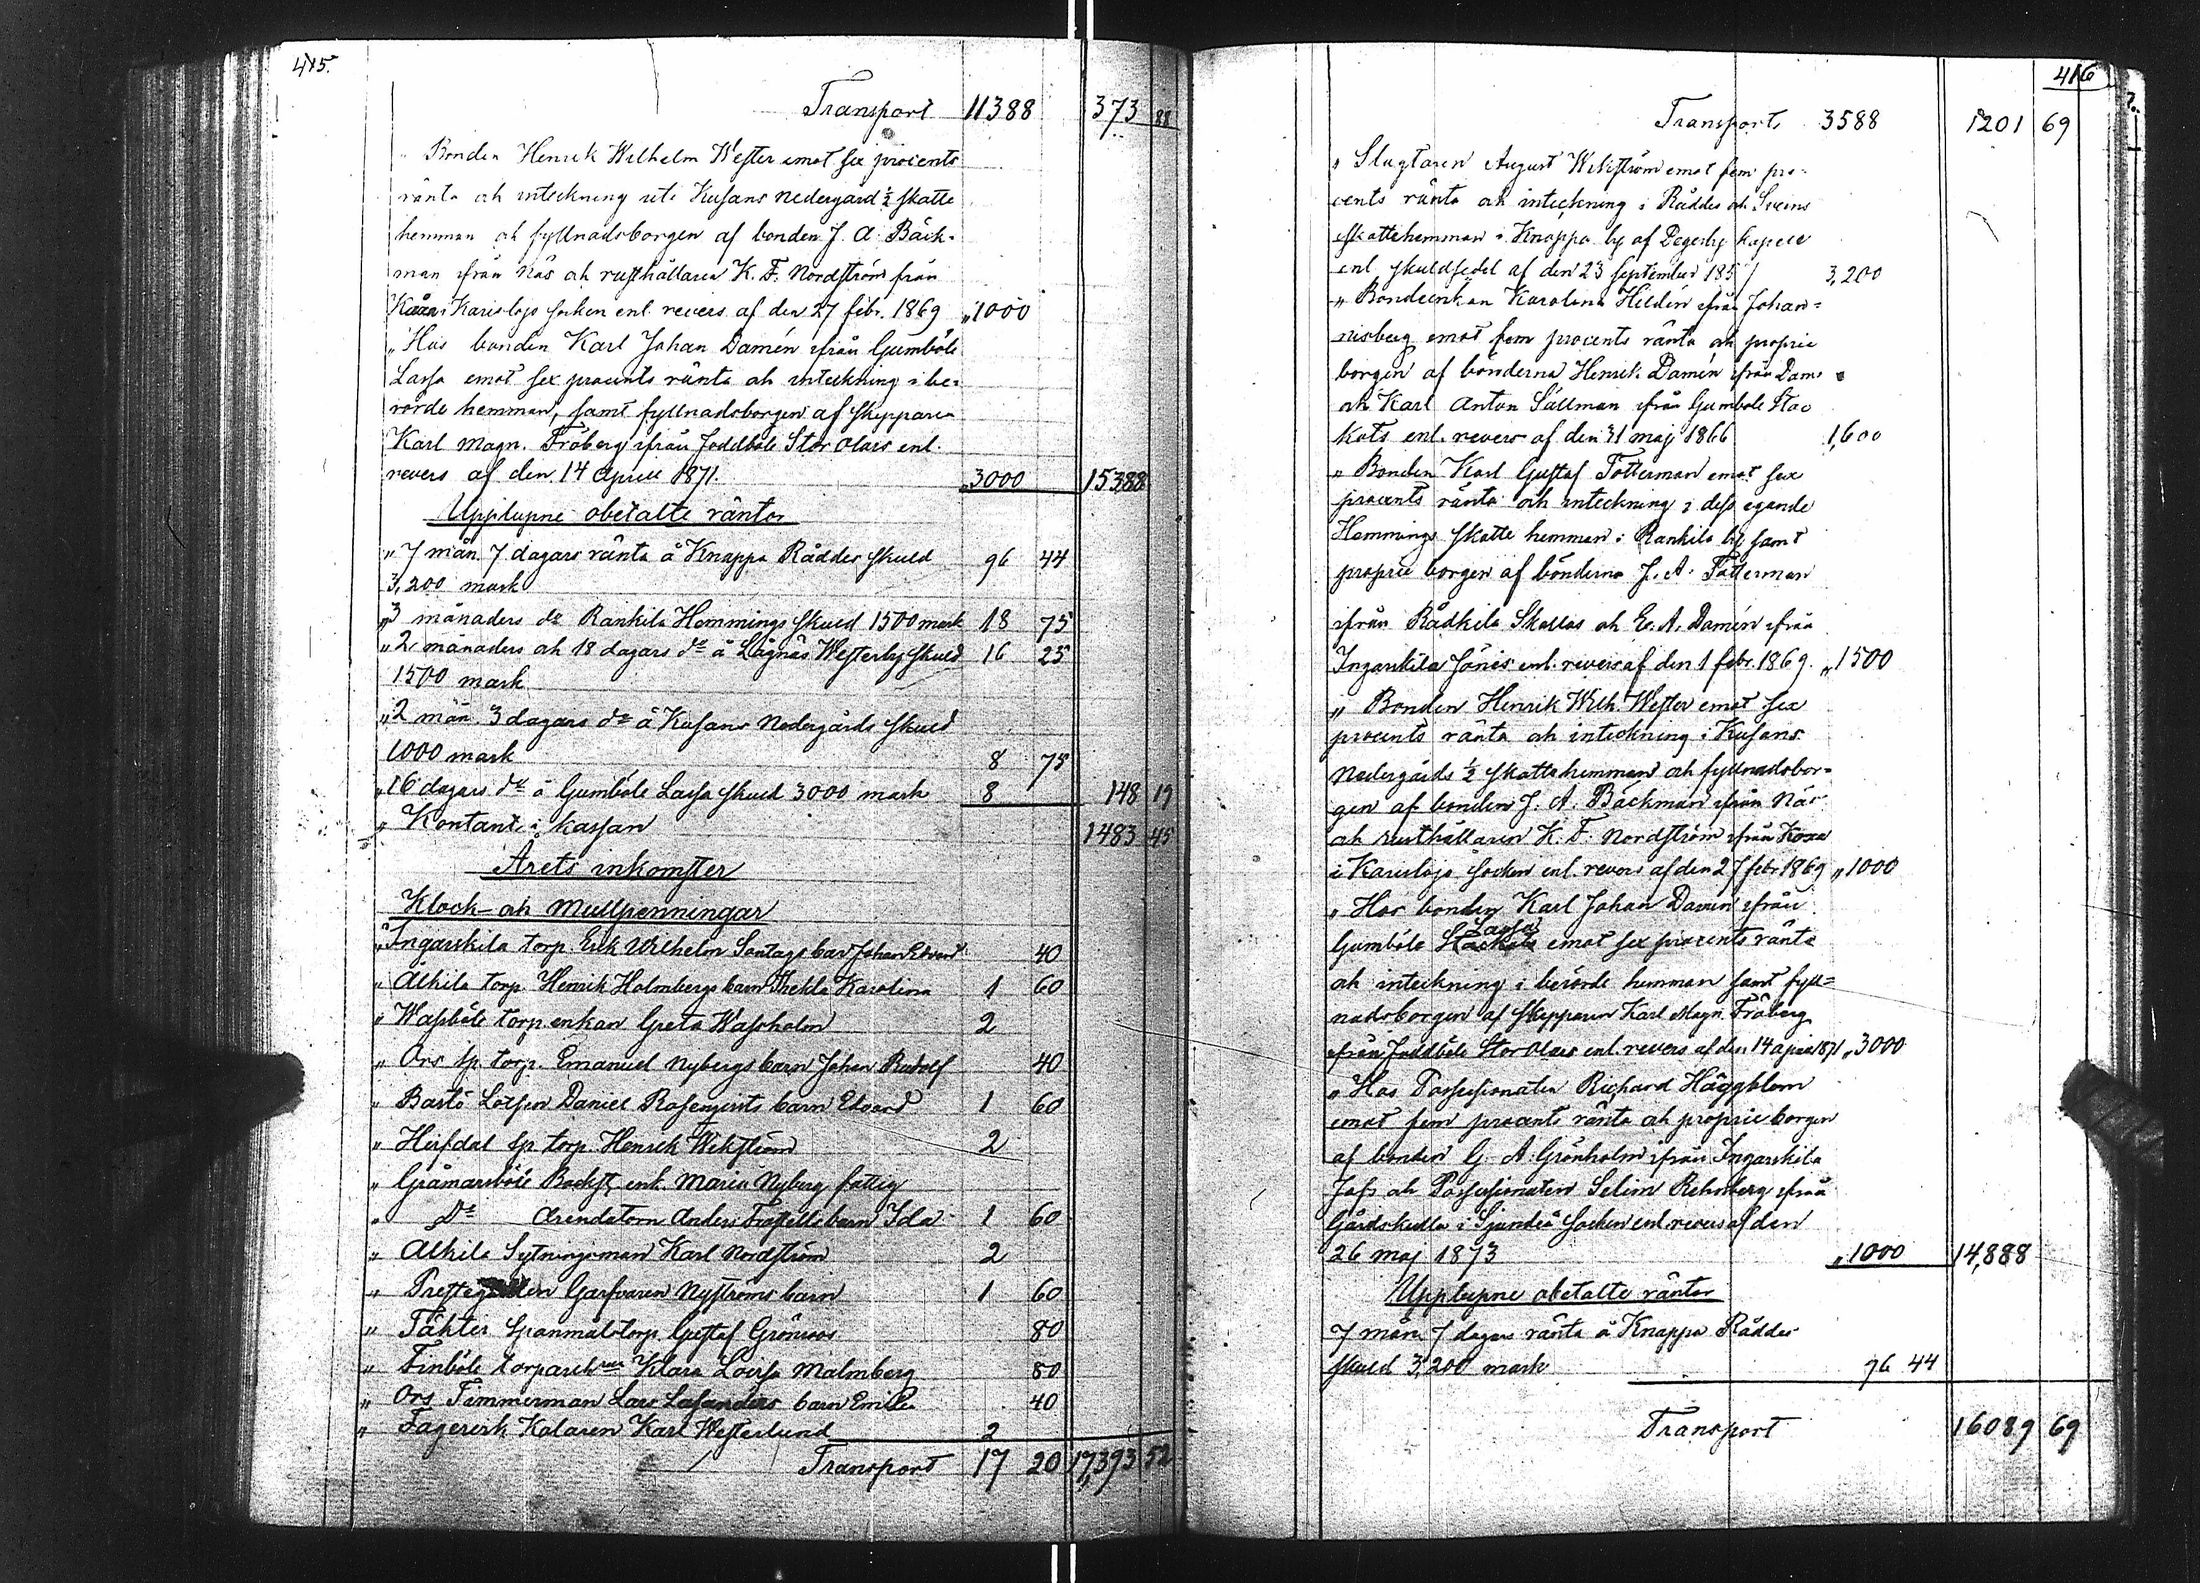 415.
Transport 11388 373 88
" Bonden Henrik Wilhelm Wester emot sex procents
ränta och inteckning uti Kusans Nedergård ½ skatte
hemman och fyllnadsborgen af bonden J. A. Bäck-
man ifrån Näs och rusthållaren K. F. Nordström från
i Karislojo socken enl. revers af den 27 febr. 1869 " 1000
" Hos bonden Karl Johan Damén ifrån Gumböle
Lassa emot sex procents ränta och inteckning i be-
rörde hemman, samt fyllnadsborgen af skepparen
Karl Magn. Fröberg ifrån Joddböle Stor Olars enl.
revers af den 14 April 1871. " 3000 15388
Upplupne obetalte räntor
" 7 mån. 7 dagars ränta å Knappa Råddes skuld 96 44
3,200 mark
" 3 månaders do Rankila Hemmings skuld 1500 mark 18 75
" 2 månaders och 18 dagars do å Lågnäs Westerby skuld 16 25
1500 mark
" 2 mån. 3 dagars do å Kusans Nedergårds skuld
1000 mark 8 75
" 16 dagars do å Gumböle Lassa skuld 3000 mark 8 148 19
" Kontant i kassan 1483 45
Årets inkomster
Klock- och Mullpenningar
" Ingarskila torp. Erik Wilhelm Sontags barn Johan Edvard 40
" Alkila torp. Henrik Holmbergs barn Thekla Karolina 1 60
" Wasböle torp. enkan Greta Washolm 2
" Ors sp. torp. Emanuel Nybergs barn Johan Rudolf 40
" Bastö Lotsen Daniel Rosenqvists barn Edvard 1 60
" Heifdal sp. torp. Henrik Wikström 2
" Gråmarsböle Backst. enk. Maria Nyberg fattig
" Do Arendatorn Anders barn Ida 1 60
" Alkila Sytningsman Karl Nordström 2
" Garfvaren Nyströms barn 1 60
" Täkter Spanmålstorp. Gustaf Grönroos 80
" Finböle torpare Klara Lovisa Malmberg 80
" Ors Timmerman Lars barn Emilia 40
" Fagervik Kolaren Karl Westerlund 2
Transport 17 20 17,393 52
416
Transport 3588 1201 69
" Slagtaren August Wikström emot fem pro-
cents ränta och inteckning i Råddes och Svens
skattehemman i Knappa by af Degerby kapell
enl. skuldsedel af den 23 September 185 3,200
" Bondeenkan Karolina Heldén ifrån Johan-
nisberg emot fem procents ränta och proprie
borgen af bönderna Henrik Damén ifrån Dams
och Karl Anton Sällman ifrån Gumböle Stac
kots enl. revers af den 31 maj 1866 1,600
" Bonden Karl Gustaf Totterman emot sex
procents ränta och inteckning i dess egande
Hemmings skatte hemman i Rankila by samt
proprie borgen af bönderna J. A. Totterman
ifrån Rådkila Skallas och E. A. Damén ifrån
Ingarskila Jönis enl. revers af den 1 febr. 1869. " 1500
" Bonden Henrik Wilh. Wester emot sex
procents ränta och inteckning i Kusans
Nedergårds ½ skattehemman och fyllnadsbor-
gen af bonden J. A. Bäckman ifrån Näs
och rusthållaren K. F. Nordström ifrån
i Karislojo socken enl. revers af den 27 febr. 1869 " 1000
" Hos bonden Karl Johan Damén ifrån
Lassa
Gumböle Stackots emot sex procents ränta
och inteckning i berörde hemman samt fyll-
nadsborgen af skepparen Karl Magn. Fröberg
ifrån Joddböle Stor Olars enl. revers af den 14 april 1871 " 3000
" Hos Possessionaten Richard Häggblom
emot fem procents ränta och proprie borgen
af bonden G. A. Grönholm ifrån Ingarskila
Jofs och Possessionaten Selim Rehnberg ifrån
Gårdskulla i Sjundeå socken enl. revers af den
26 maj 1873 " 1000 14,888
Upplupne obetalte räntor
7 mån. 7 dagars ränta å Knappa Råddes
skuld 3,200 mark 96 44
Transport 16089 69